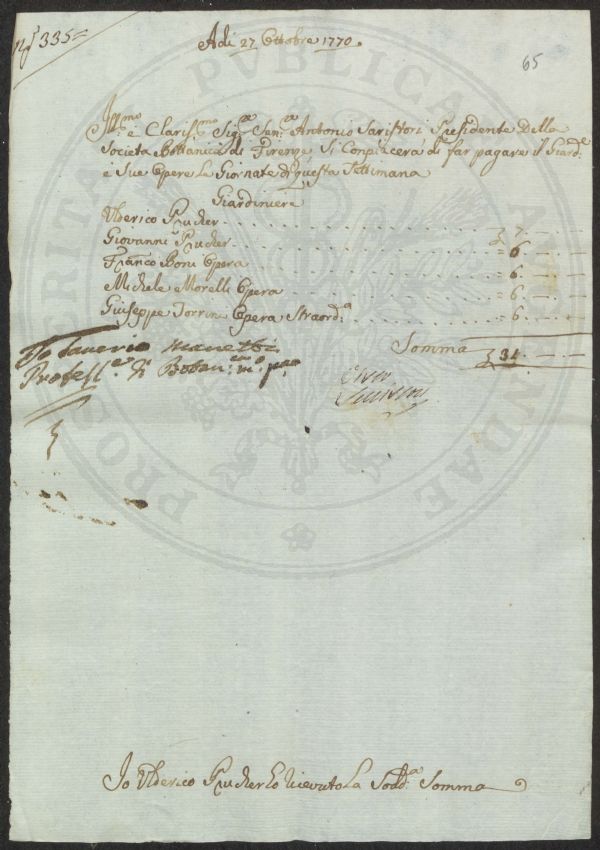 N° 335=
Adi 27 Ottobre 1770.
65
Ill:mo e Clariss:mo Sig:re Sen:re Antonio Saristori Presidente Della
Societa Bottanica di Firenze Si Conpiacera di far pagare il Giard:e
e Sue Opere La Giornate di questa Settimana
Giardiniere
Ulderico Prucher 7
Giovanni Prucher = 6
Franco Boni Opera = 6
Michele Morelli Opera = 6
Giuseppe Torrini Opera Straord:a = 6
Somma 31
Io Saverio Manetti
Profess:e di Botan:ca m:o p:a
Io Ulderico Prucher Ho ricevuto La Sodd:a Somma
PROSPERITATI PVBLICAE AVGENDAE